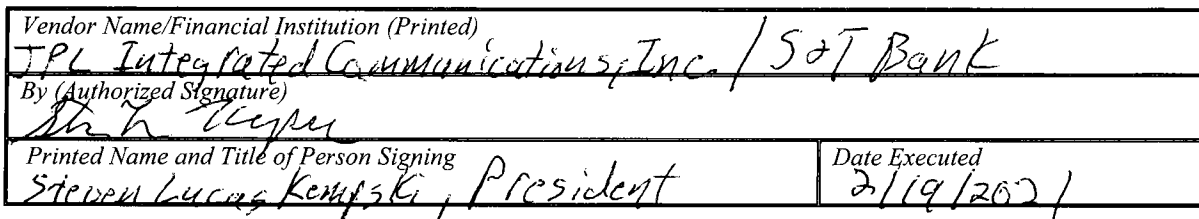 Vendor Name/Financial Institution (Printed)
JPL Integrated Communications, Inc. / S&T Bank
By (Authorized Signature)
Printed Name and Title of Person Signing
Steven Lucas Kempski, President
Date Executed
2/19/2021